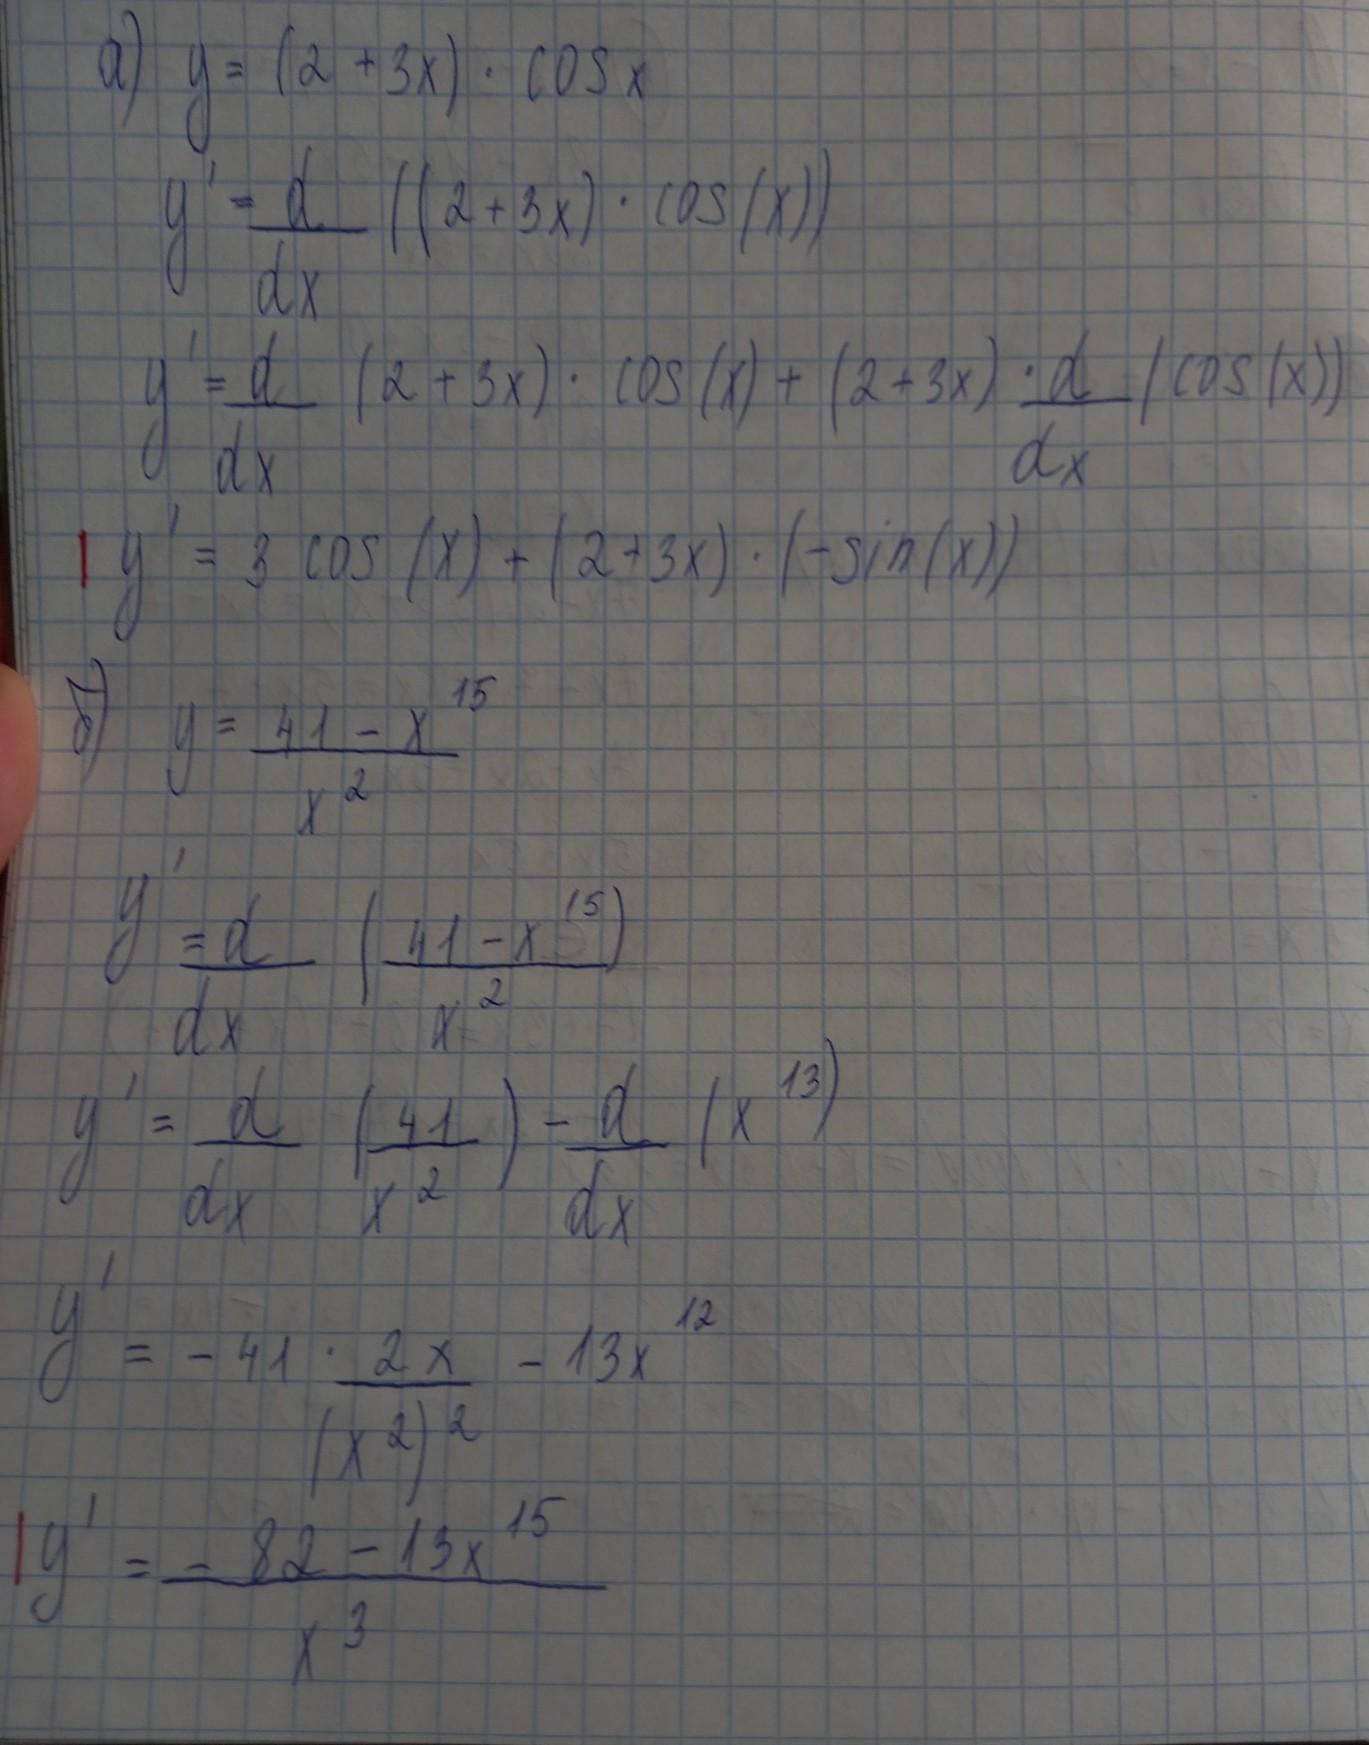 а) y = (2 + 3x) · cos x
y' = d/dx ((2 + 3x) · cos(x))
y' = d/dx (2 + 3x) · cos(x) + (2 + 3x) · d/dx (cos(x))
y' = 3 cos(x) + (2 + 3x) · (-sin(x))
б) y = (41 - x^15)/x^2
y' = d/dx ((41 - x^15)/x^2)
y' = d/dx (41/x^2) - d/dx (x^13)
y' = -41 · 2x/(x^2)^2 - 13x^12
y' = (-82 - 13x^15)/x^3